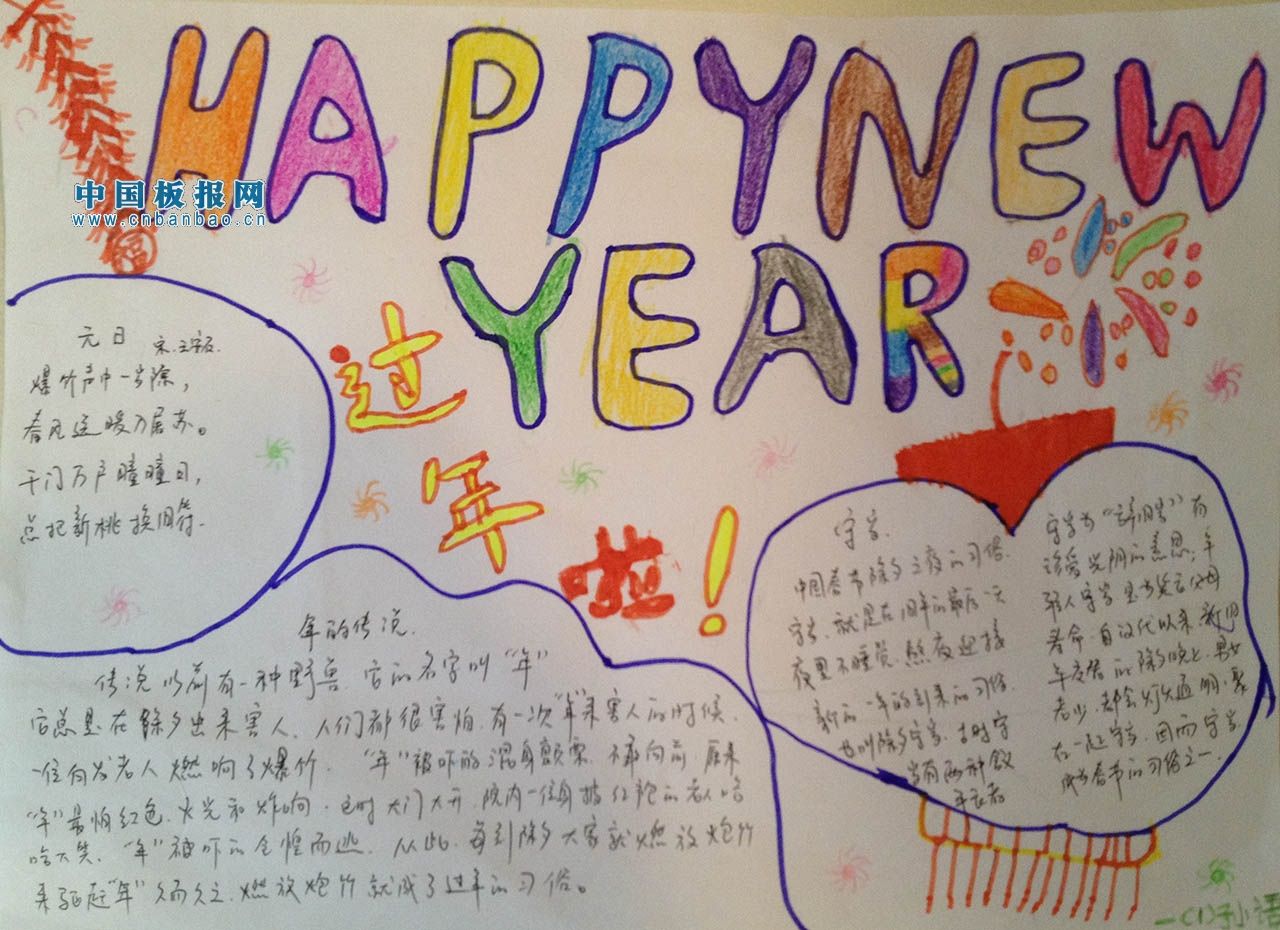 HAPPY NEW
YEAR
中国板报网
www.cnbanbao.cn
福
过
年
啦！
元日 宋.王安石.
爆竹声中一岁除，
春风送暖入屠苏。
千门万户瞳瞳日，
总把新桃换旧符.
年的传说.
传说以前有一种野兽.它的名字叫“年”
它总是在除夕出来害人.人们都很害怕.有一次“年”来害人的时候.
一位白发老人燃响了爆竹.“年”被吓的浑身颤栗.不敢向前.原来
“年”最怕红色.火光和炸响.这时大门大开.院内一位身披红袍的老人哈
哈大笑.“年”被吓的仓惶而逃.从此.每到除夕大家就燃放炮竹
来驱赶“年”久而久之.燃放炮竹就成了过年的习俗。
守岁.
中国春节除夕之夜的习俗.
守岁.就是在旧年的最后一天
夜里不睡觉.熬夜迎接
新的一年的到来的习俗.
也叫除夕守岁.古时守
岁有两种
年长者
守岁为“辞旧岁”有
珍爱光阴的意思；年
轻人守岁是为延长父母
寿命.自汉代以来.新旧
年交替的除夕晚上.男女
老少.都会灯火通明.聚
在一起守岁.因而守岁
成为春节的习俗之一.
一(1)孙语